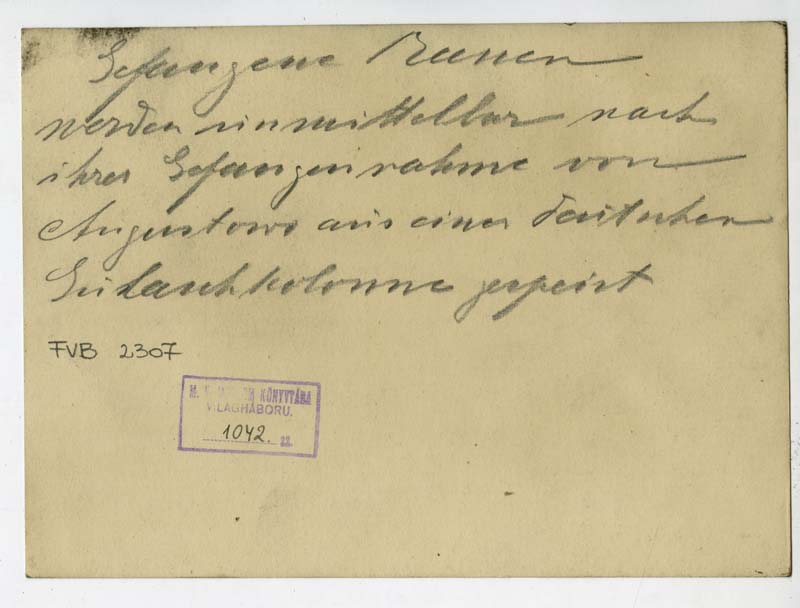 Gefangene Russen
werden unmittelbar nach
ihrer Gefangennahme von
Augustowo aus einer deutschen
Gulaschkolonne gespeist
FVB 2307
M. KÖNYVTÁRA
VILÁGHÁBORU.
1042. sz.